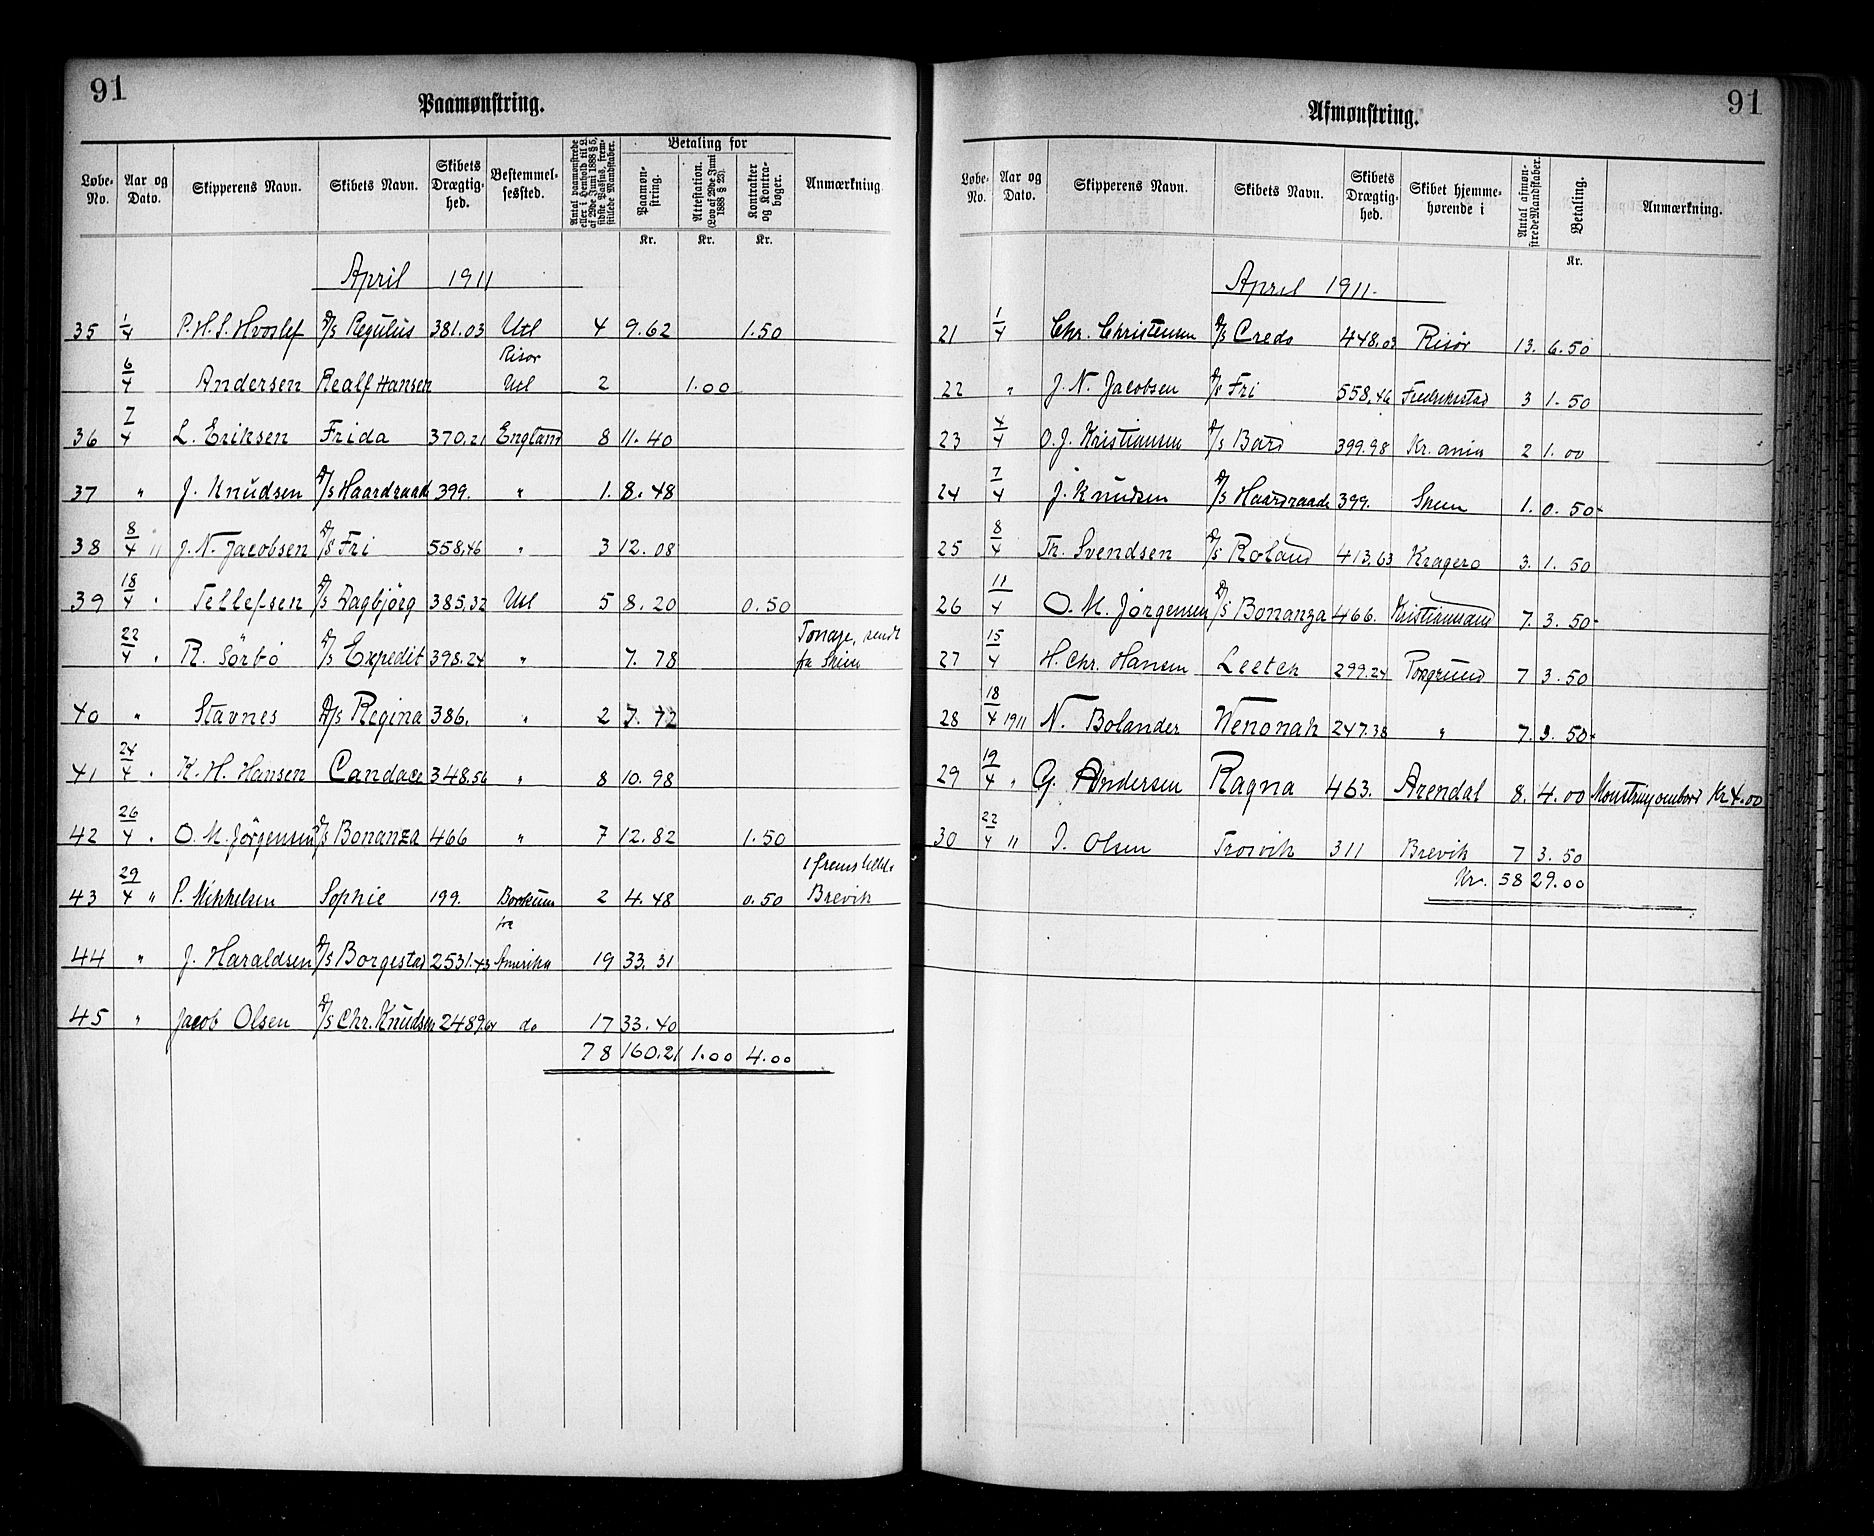 91
Paamønstring.
Løbe-No. Aar og Dato. Skipperens Navn. Skibets Navn. Skibets Drægtig-hed. Bestemmel-sessted. Antal paamønstrede eller i Henhold til L. af 29de Juni 1888 § 5, sidste Passus, frem-stillede Mandstaber. Betaling for Paamøn-string. Attestation. (Lov af 29de Juni 1888 § 23). Kontrakter og Kontra-bøger. Anmærkning.
Kr. Kr. Kr.
April 1911
35 1/4 P. H. S. Hvoslef D/S Regulus 381.03 Utl 4 9.62 1.50
6/4 Andersen Realf Hansen Risør Utl 2 1.00
36 7/4 L. Eriksen Frida 370,21 England 8 11.40
37 " J. Knudsen D/S Haardraade 399. " 1. 8.48
38 8/4 " J. N. Jacobsen D/S Fri 558,46 " 3 12.08
39 18/4 " Tellefsen D/S Dagbjørg 385,32 Utl 5 8.20 0.50
22/4 " R. Sörbö D/S Expedit 398.24 " 7.78 Tonage, sendt fra Skien
40 " Stavnes D/S Regina 386. " 2 7.72
41 24/4 " K. H. Hansen Candace 348.56 " 8 10.98
42 26/4 " O. M. Jörgensen D/S Bonanza 466 " 7 12.82 1.50
43 29/4 " P. Mikkelsen Sophie 199. Borkum 2 4.48 0.50 1 fremstillet Brevik
44 " J. Haraldsen D/S Borgestad 2531.43 fra Amerika 19 33.31
45 " Jacob Olsen D/S Chr. Knudsen 2489.64 do 17 33.40
78 160.21 1.00 4.00
91
Afmønstring.
Løbe-No. Aar og Dato. Skipperens Navn. Skibets Navn. Skibets Drægtig-hed. Skibet hjemme-hørende i Antal afmøn-strede Mandstaber. Betaling. Anmærkning.
Kr.
April 1911.
21 1/4 Chr. Christensen D/S Credo 448,03 Risør 13. 6.50
22 " J. N. Jacobsen D/S Fri 558,46 Fredrikstad 3 1.50
23 4/4 O. J. Kristiansen D/S Bard 399.98 Kr.ania 2 1.00
24 7/4 J. Knudsen D/S Haardraade 399. Skien 1. 0.50
25 8/4 Th. Svendsen D/S Roland 413,63 Kragerø 3. 1.50
26 11/4 O. M. Jørgensen D/S Bonanza 466. Kristiansand 7. 3.50
27 15/4 H. Chr. Hansen Leetch 299.24 Porsgrund 7 3.50
28 18/4 1911 N. Bolander Wenonah 247.38 " 7. 3.50
29 19/4 " G. Andersen Ragna 463. Arendal 8. 4.00 Mönstring ombord Kr 4.00
30 22/4 " J. Olsen Trosvik 311 Brevik 7 3.50
Kr. 58 29.00